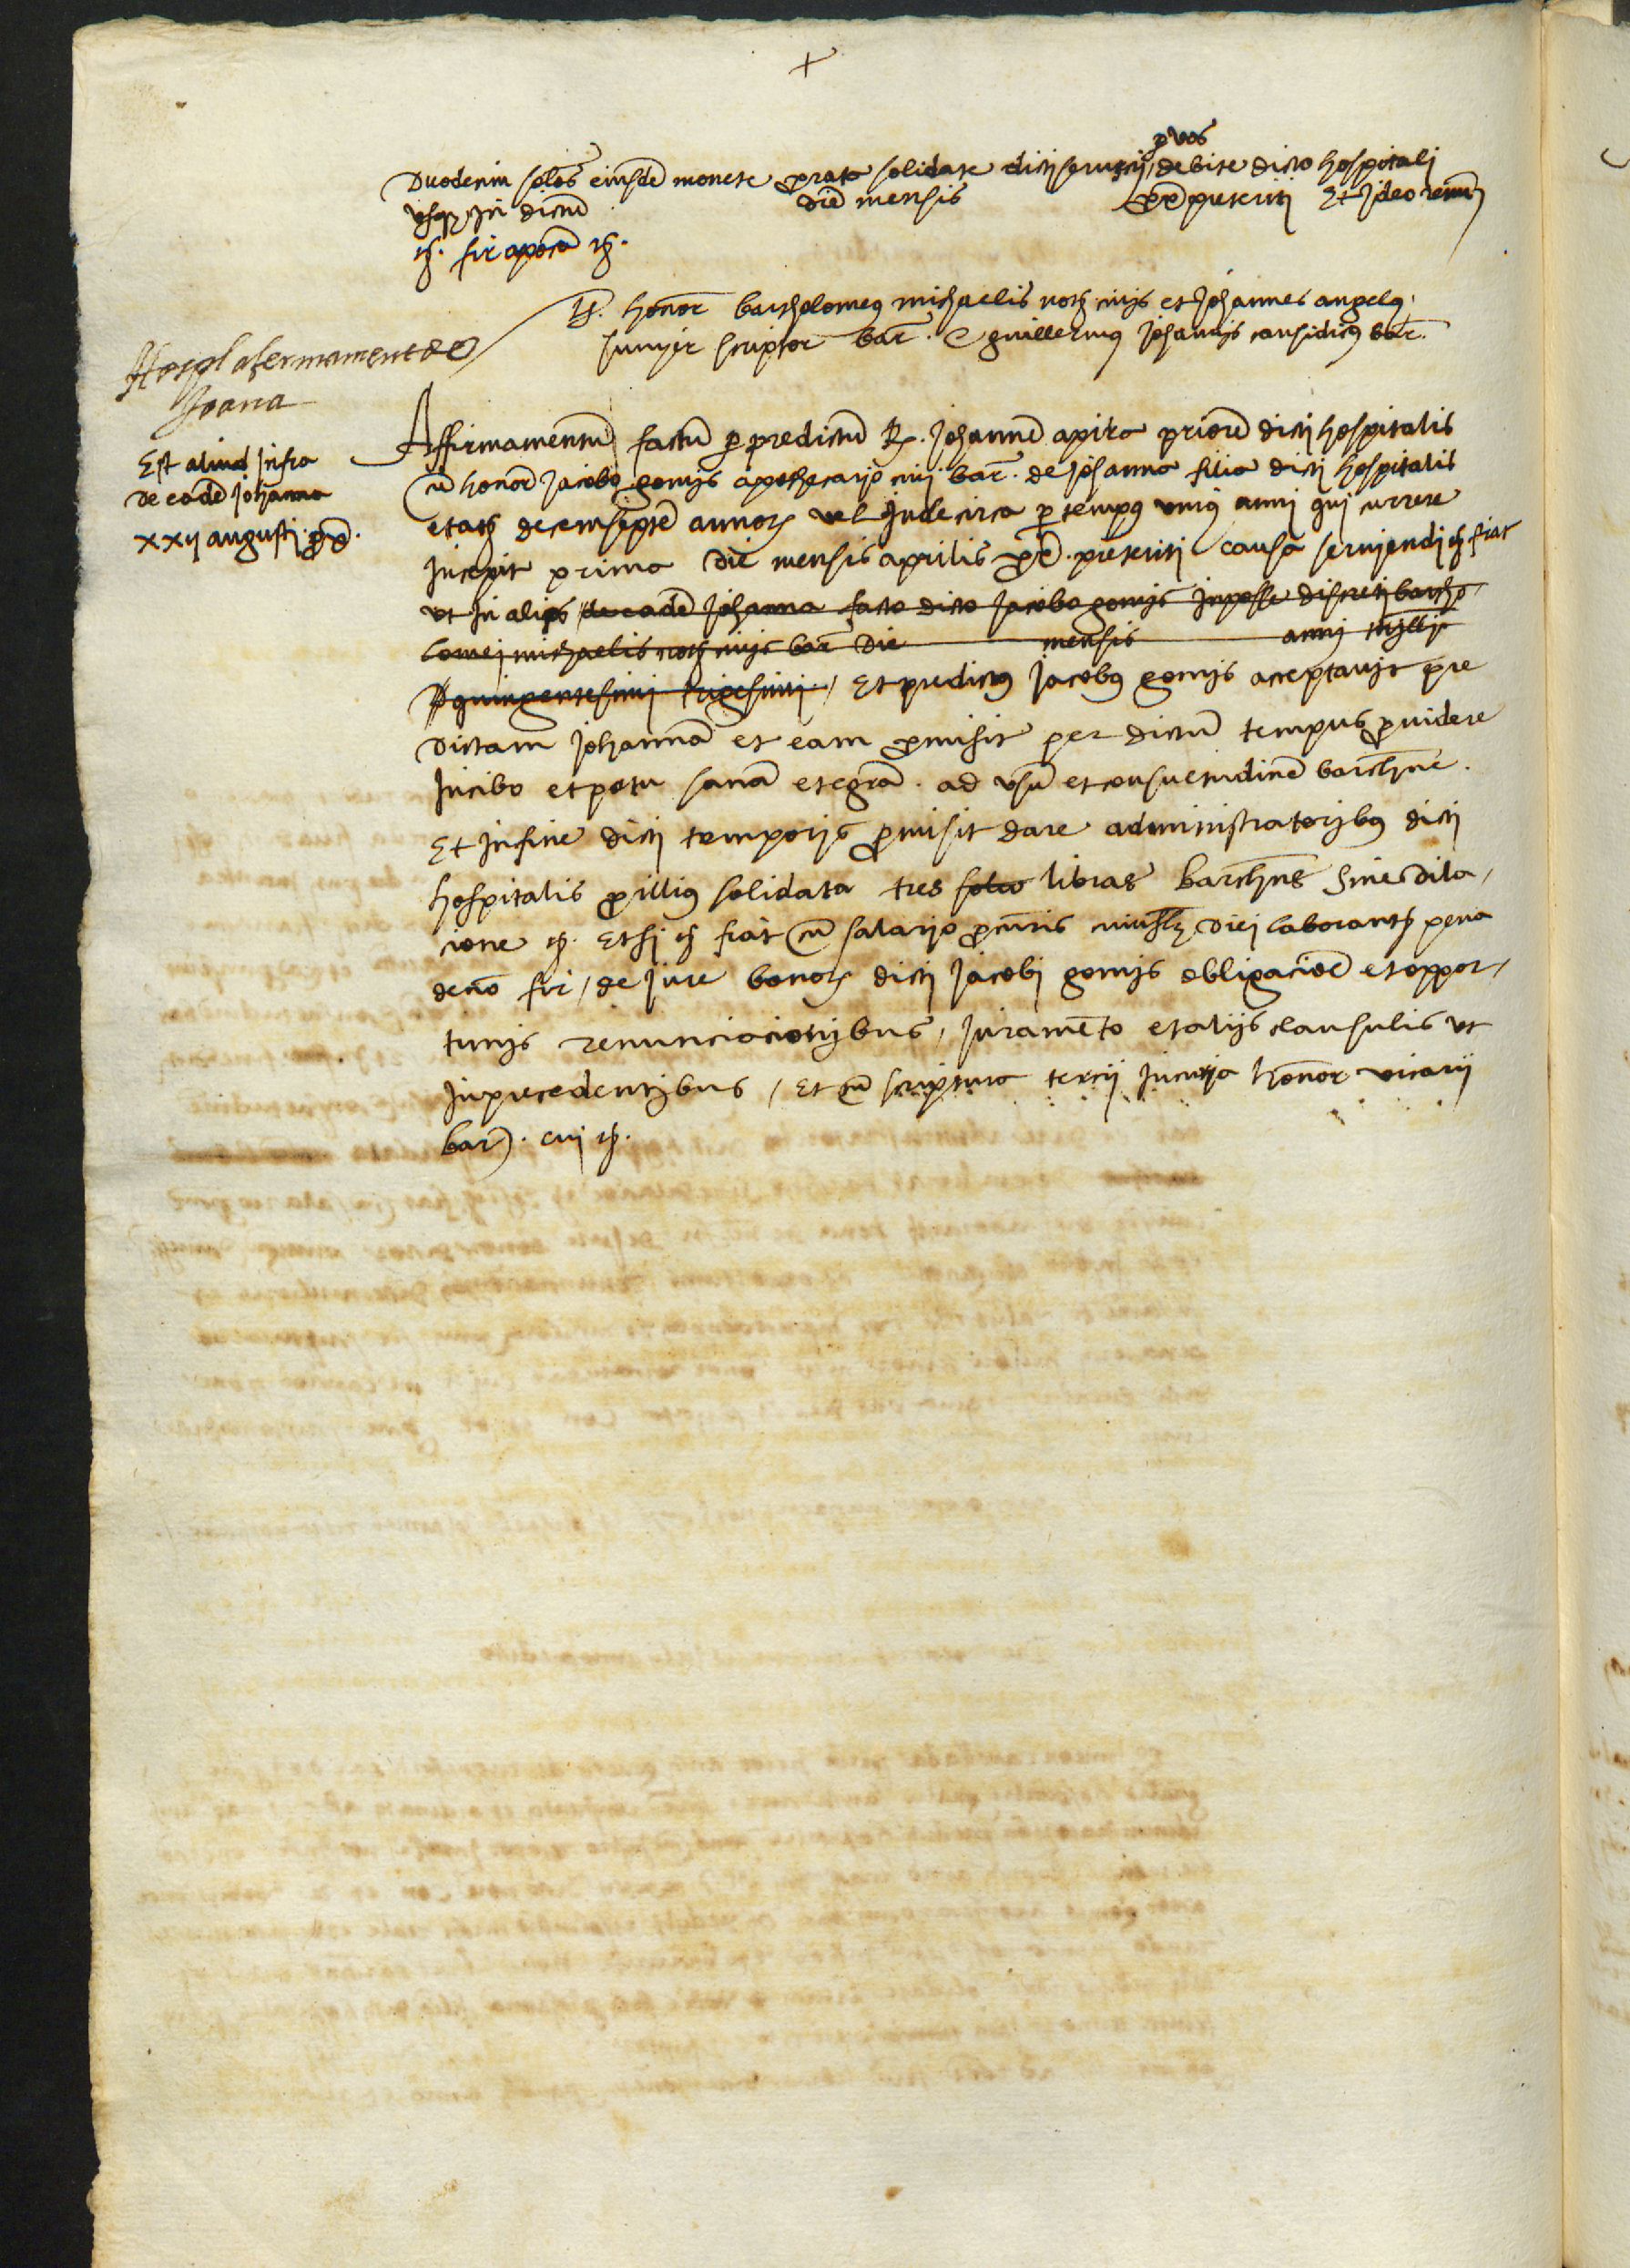 +
p vos
Duodecim solos eiusdē monete prata solidate dicti servitii debite dicto hospitali
usq; in dictū diē mensis prox̄ preteriti Et ideo renūti
etc. fir apoca etc.
Ts. honor bartholomeus michaelis not. civis et Johannes angelus
Junyer scriptor bar. & guillermus Johannis causidicus bar.
Hospl afermament de
Joana
Est aliud infra
de eadē Johanna
xxij augusti prox̄.
Affirmamentū factū p predictū R. Johannē apita priorē dicti hospitalis
cū honor Jacobo gomis apothecario civi bar. de Johanna filia dicti hospitalis
etatis decemseptē annor. vel inde circa p tempus unius anni qui currere
incepit prima die mensis aprilis prox̄. preteriti causa serviendi etc. fiat
ut in aliis de eadē Johanna facto dicto Jacobo gomis in posse discreti bartho
lomei michaelis not. civis bar die mensis anni millī
quingentesimi trigesimi / Et predictus Jacobus gomis acceptavit pre
dictam Johannā et eam promisit per dictū tempus providere
in cibo et potu sanā et egrā. ad usū et consuetudinē barchne.
Et in fine dicti temporis promisit dare administratoribus dicti
hospitalis pro illius solidata tres solio libras barchnē sine dila
cione etc. Et si etc. fiat cū salario procuris cuiuslz diei laborantis pena
decō fir / de jure bonor. dicti Jacobi gomis obligacionē et oppor
tunis renunciacionibus / Juramēto et aliis clausulis ut
in precedentibus / Et cū scriptura tercii in curia honor vicarii
bar. cui etc.